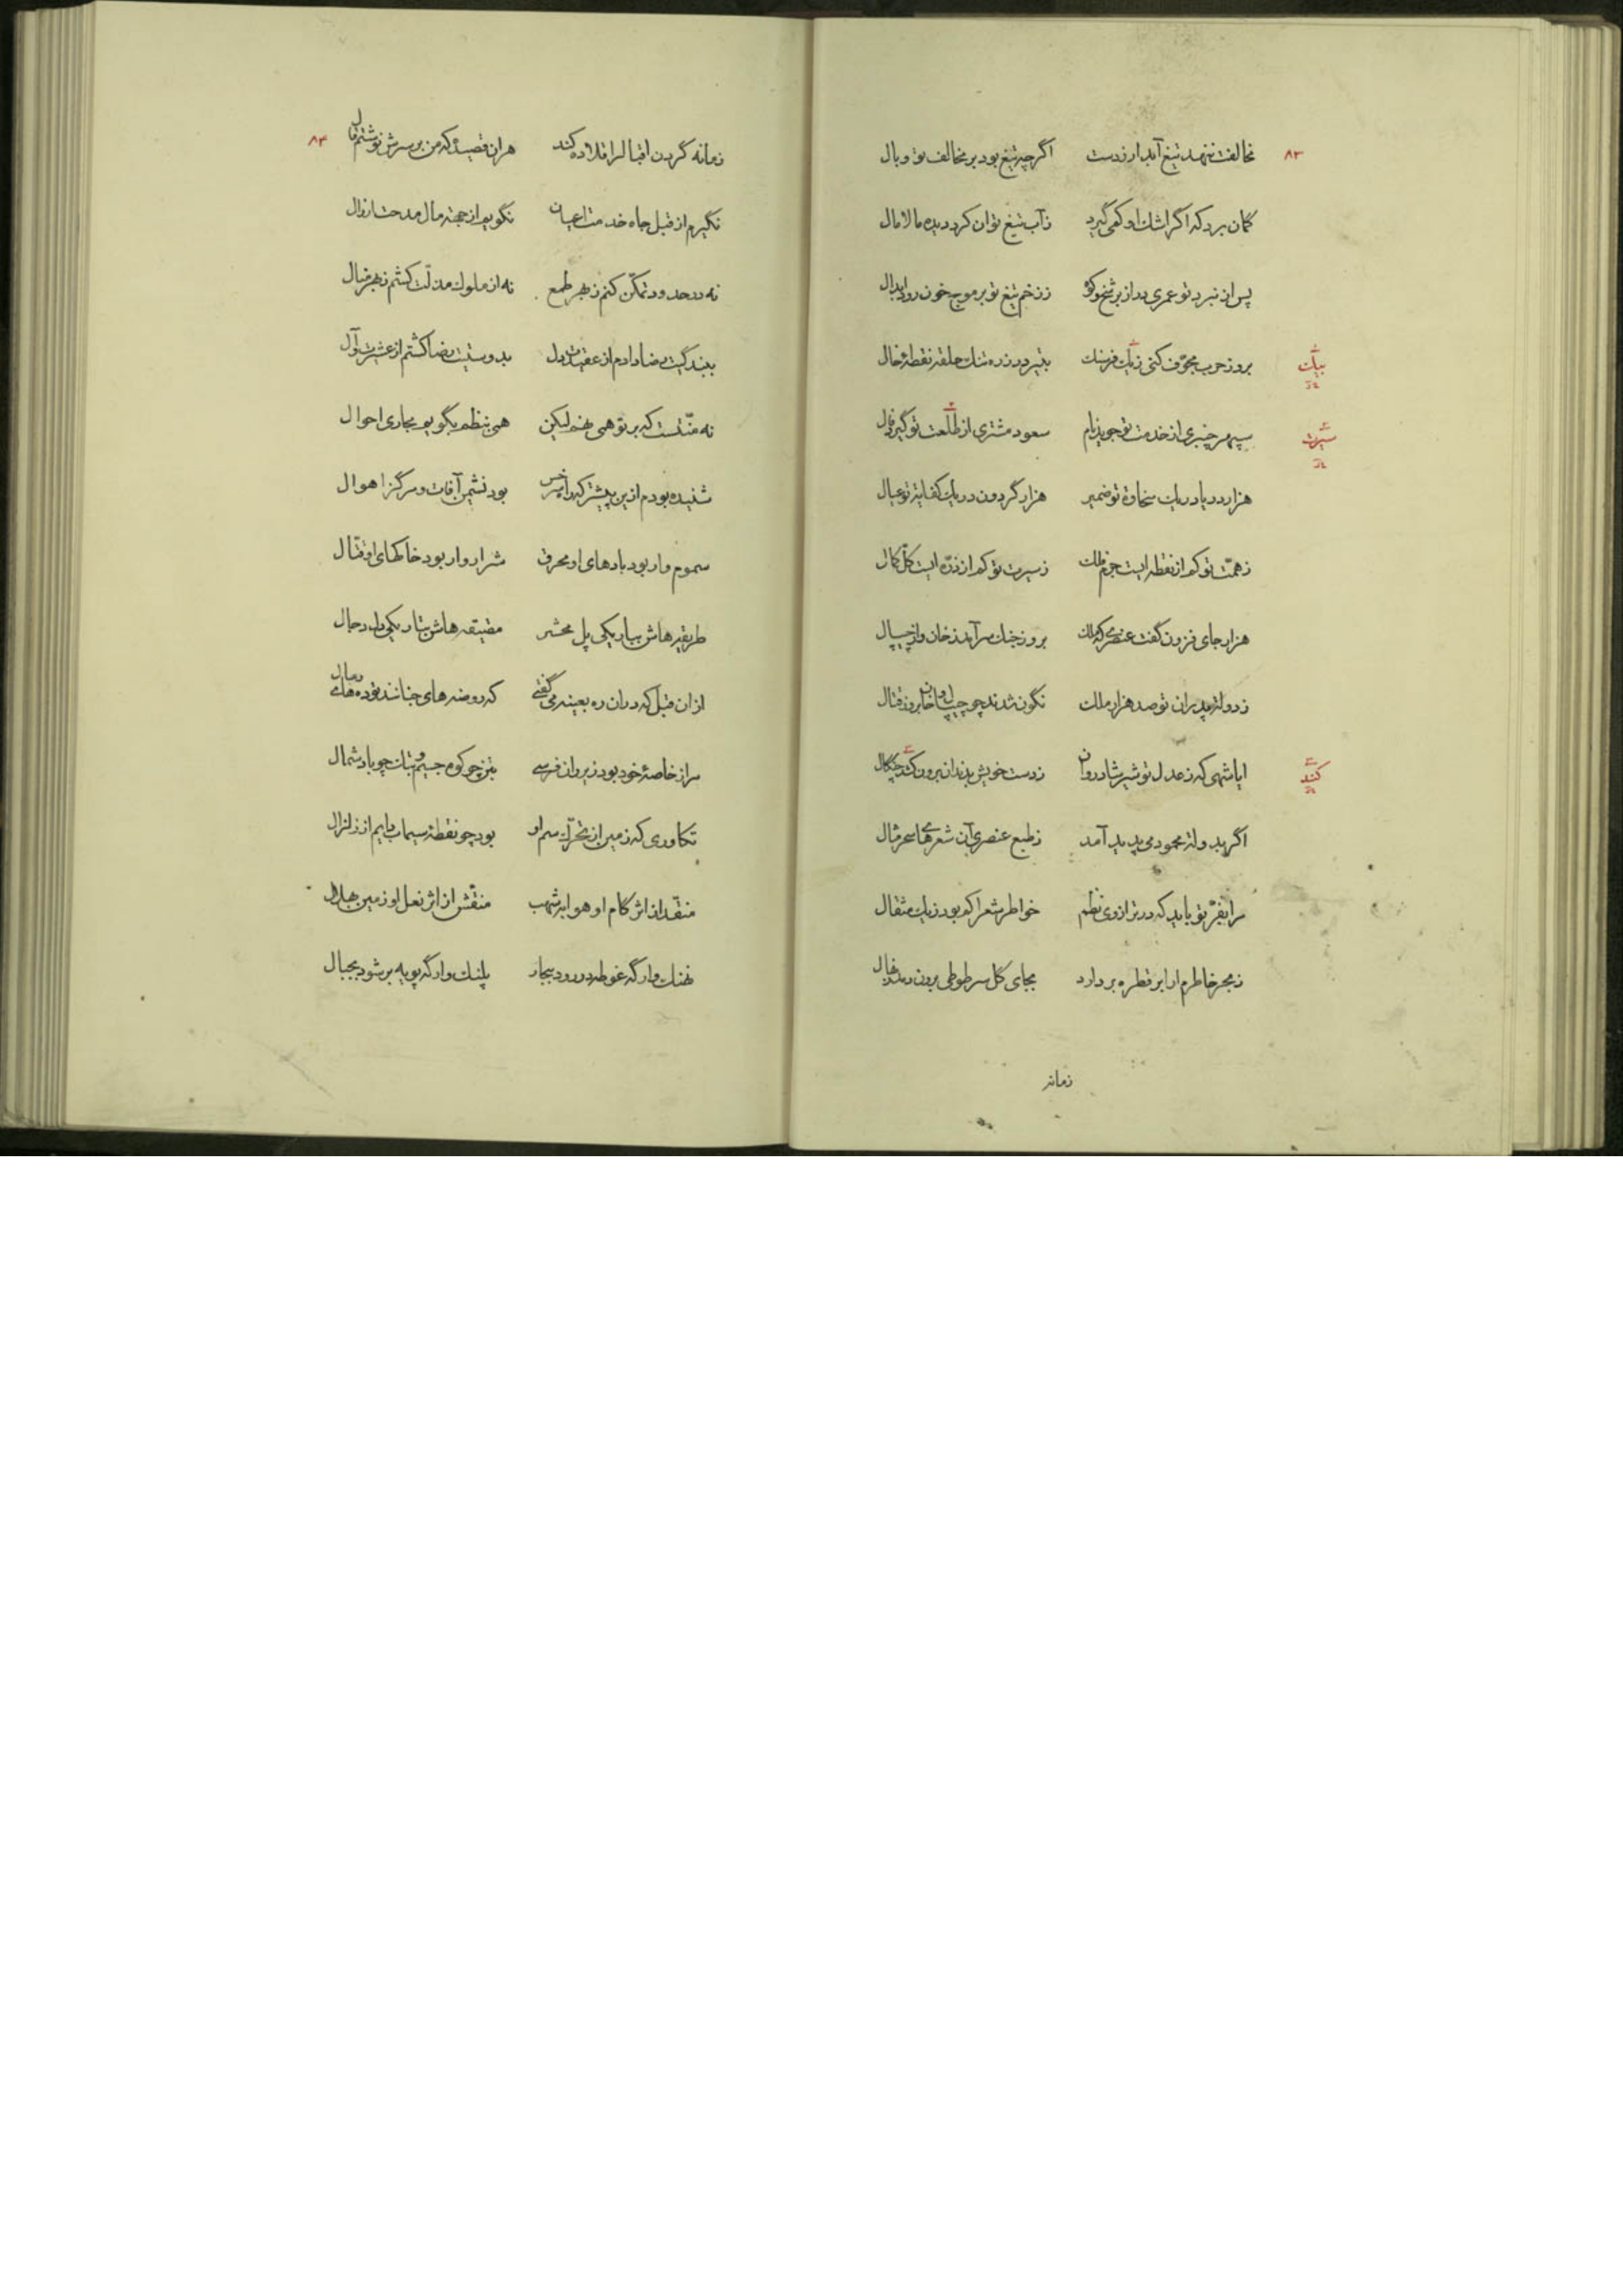 ۸۲
مخالفت ننهد تیغ آبدار زدست اگرچه تیغ بود بر مخالف تو وبال
گمان برد که اگر اشک او کمی گیرد زآب تیغ توان کرد دیده مالامال
پس از نبرد تو عمری دراز بر شخ و کوه ززخم تیغ تو بر موج خون رود ابدال
بروز حرب مجوّف کنی زیک فرسنگ بتیر در زره تنک حلقه نقطهٔ خال
بیک
سپهر چنبری از خدمت تو جوید نام سعود مشتری از طلعت تو گیرد فال
سیرت
هزار دریا در یک سخاوة تو ضمیر هزار گردون در یک کفایة تو عیال
زهمّت تو کم از نقطه ایست جرم فلک زسیرت تو کم از ذرّه ایست کلّ کمال
هزار جای فزون گفت عنصری که ملک بروز جنگ سر آمد زخان واز چیپال
زدولة پدران تو صد هزار ملک نگون شدند چو چیپال و خان بروز قتال
ایا شهی که زعدل تو شیر شادروان زدست خویش بدندان برون کند چنگال
کند
اگر بدولة محمود می پدید آمد زطبع عنصری آن شعرهای سحر مثال
مرا بفرّ تو باید که در ترازوی نظم خواطر شعرا کم بود زیک مثقال
زبحر خاطرم ار ابر قطره بردارد بجای گل سر طوطی برون دمد زنهال
زمانه
۸۳
زمانه گردن اقبال را قلاده کند هران قصیده که من بر سرش نوشتم قال
نگیرم از قبل جاه خدمت اعیان نگویم از جهة مال مدحت ارذال
نه در حدود تمکّن کنم زبهر طمع نه از ملوک مذلّت کشم زبهر منال
ببندگیت رضا دادم از عقیدت دل بدوستیت رضا گشتم از عشیرت وآل
نه منّتست که بر تو همی نهم لیکن همی بنظم بگویم مجاری احوال
شنیده بودم ازین پیشتر که راه سرخس بود نشیمن آفات و مرکز اهوال
سموم وار بود بادهای او محرق شرار وار بود خاکهای او قتّال
طریقه هاش بباریکی پل محشر مضیقه هاش بتاریکی دل دجال
ازان قبل که دران ره بعینه می گفتی که روضه های جنانند توده های رمال
مرا زخاصهٔ خود بود زیر ران فرسی بتن چو کوه جسیم و بتک چو باد شمال
تکاوری که زمین از تحرّک سم او بود چو نقطهٔ سیماب دایم از زلزال
منقّد از اثر گام او هوا بر شهب منقّش از اثر نعل او زمین بهلال
نهنک وار گه غوطه در رود ببحار پلنک وار گه پویه بر شود بجبال